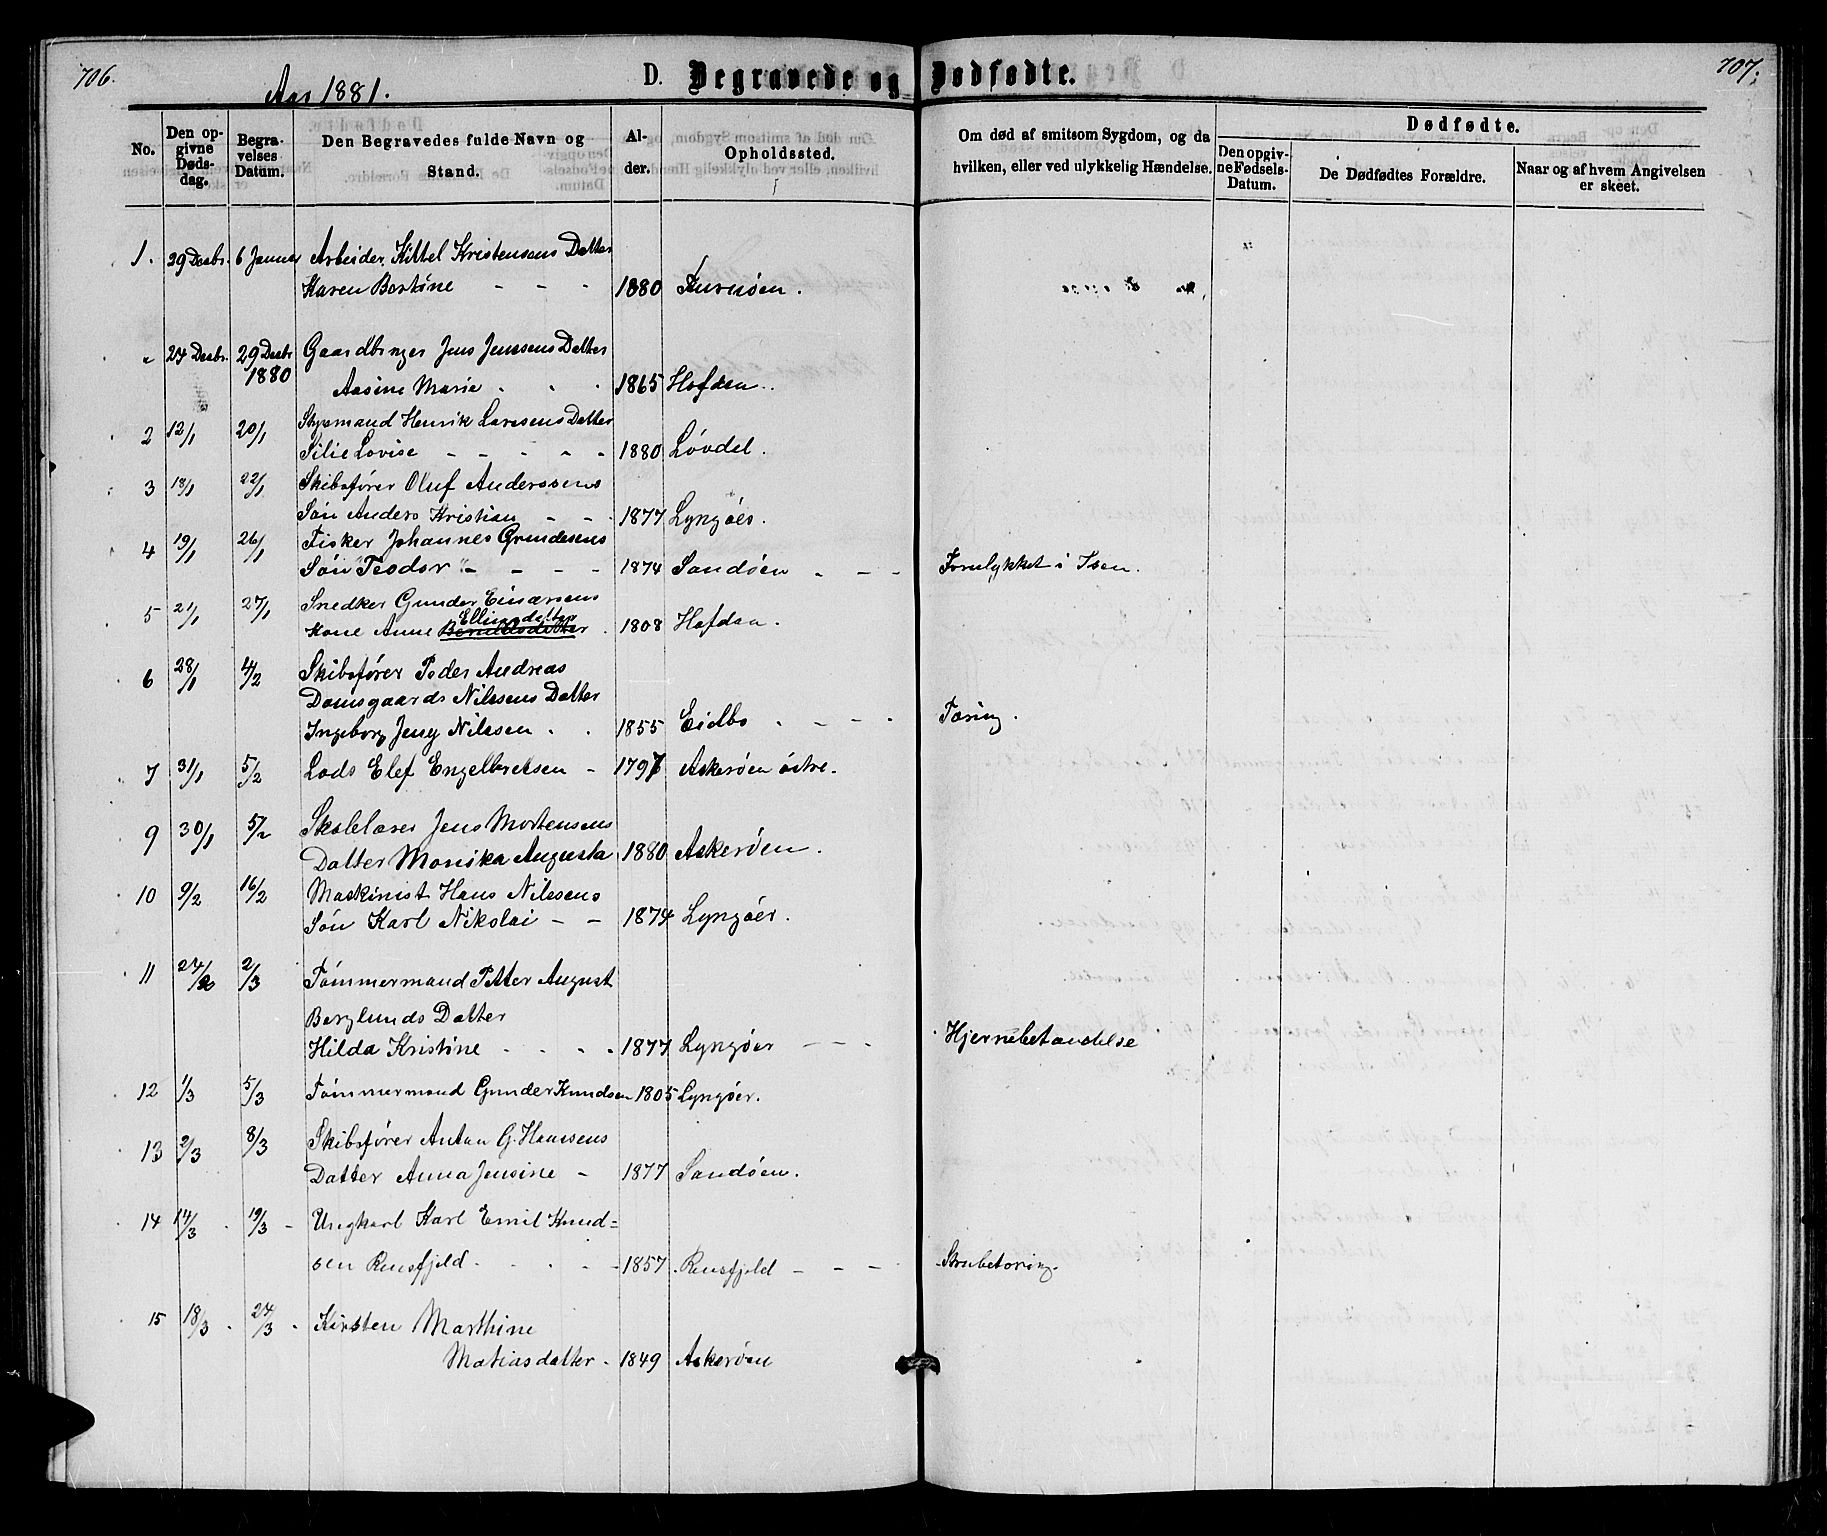 706.
Aar 1881.
D. Begravede og Dødfødte.
707.
No.
Den opgivne Dødsdag.
Begravelses Datum.
Den Begravedes fulde Navn og Stand.
Alder.
Opholdssted.
Om død af smitsom Sygdom, og da hvilken, eller ved ulykkelig Hændelse.
Dødfødte.
Den opgivne Fødsels-Datum.
De Dødfødtes Forældre.
Naar og af hvem Angivelsen er skeet.
1. 29 Decbr. 6 Januar Arbeider Kittel Kristensens Datter
Karen Bertine - - - 1880 Furuøen.
" 24 Decbr. 29 Decbr Gaardbruger Jens Jenssens Datter
1880 Aasine Marie . . . 1865 Hafdan.
2 12/1 20/1 Styrmand Henrik Larssens Datter
Silie Lovise - - - - - 1880 Løvdal.
3 18/1 22/1 Skibsfører Oluf Anderssens
Søn Anders Kristian - - 1877 Lyngøer.
4 19/1 26/1 Fisker Johannes Grundesens
Søn "Teodor" - - - - 1874 Sandøen - - - Forulykket i Isen.
5 21/1 27/1 Snedker Gunder Einarsens
Ellingsdatter
Kone Anne . 1808 Hafdan.
6 28/1 4/2 Skibsfører Peder Andreas
Domsgaards Nilssens Datter
Ingeborg Jeny Nilssen . . 1855 Eidbo . - - . Tæring.
7 31/1 5/2 Lods Elef Engelbretsen - 1797 Askerøen østre.
9 30/1 5/2 Skolelærer Jens Mortensens
Datter Monika Augusta 1880 Askerøen.
10 9/2 16/2 Maskinist Hans Nilssens
Søn Karl Nikolai - - 1874 Lyngøer.
11 24/2 2/3 Tømmermand Petter August
Berglunds Datter
Hilda Kristine - . . . 1877 Lyngøer - - - Hjernebetændelse
12 1/3 5/3 Tømmermand Gunder Knudsen 1805 Lyngøer.
13 2/3 8/3 Skibsfører Anton G. Hanssens
Datter Anna Jensine - 1877 Sandøen.
14 14/3 . 19/3 - Ungkarl Karl Emil Knud=
sen Rensfjeld - . . . - 1857 . Rensfjeld - - - Strubetæring.
15 18/3 . 24/3 . Kirsten Marthine
Matiasdatter . 1849 Askerøen